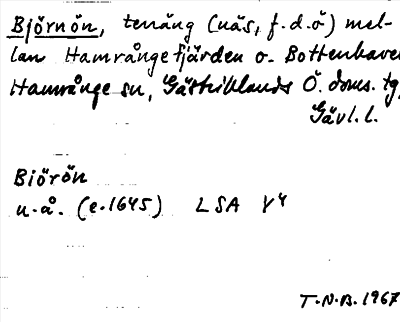 Björnön, terräng (näs, f.d. ö) mel-
lan Hamrångefjärden o. Bottenhavet
Hamrånge sn, Gästriklands Ö. doms. tg,
Gävl. l.
Biörön
u.å. (e. 1645) LSA
T.N.B. 1967